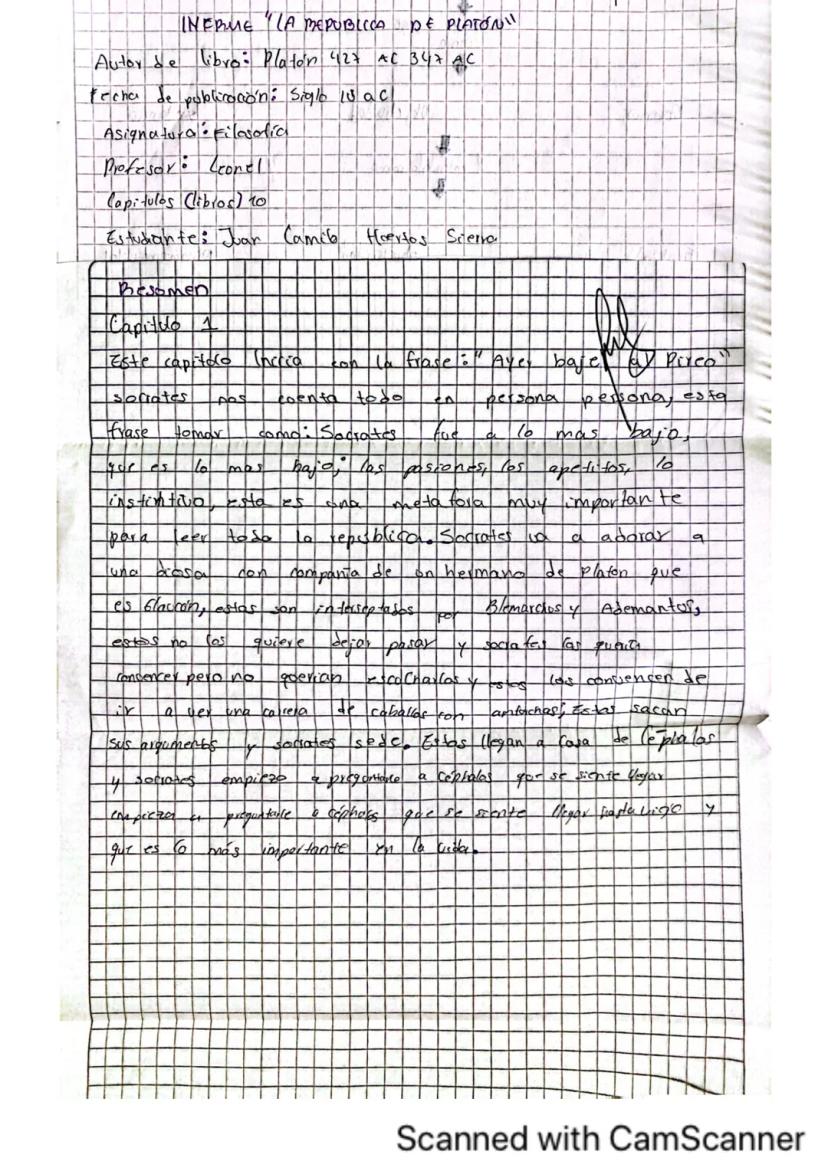 INFRME "LA REPUBLICA DE PLATÓN"
Autor de libro: Platón 427 AC 347 AC
Fecha de publicación: Siglo IV aC
Asignatura: Filosofía
Profesor: Leonel
Capitulos (libros) 10
Estudiante: Juan Camilo Huertos Sierra
Resumen
Capitulo 1
Este capitulo Inicia con la frase: "Ayer baje al Pireo"
socrates nos cuenta todo en persona persona, esta
frase tomar como: Socrates fue a lo mas bajo,
que es lo mas bajo; las pasiones, los apetitos, lo
instintivo, esta es una metafora muy importante
para leer toda la republica. Socrates va a adorar a
una diosa con compañia de un hermano de Platon que
es Glaucón, estos son interseptados por Blemarchos y Ademantos,
estos no los quiere dejar pasar y socrates los
convencer pero no querian escucharlos y estos los convencen de
ir a ver una carrera de caballos con antochas; Estos sacan
sus argumentos y socrates sede. Estos llegan a casa de Céphalos
y socrates empieza a preguntarle a céphalos que se siente llegar
empieza a preguntarle a céphalos que se siente llegar hasta viejo y
que es lo más importante en la vida.
Scanned with CamScanner